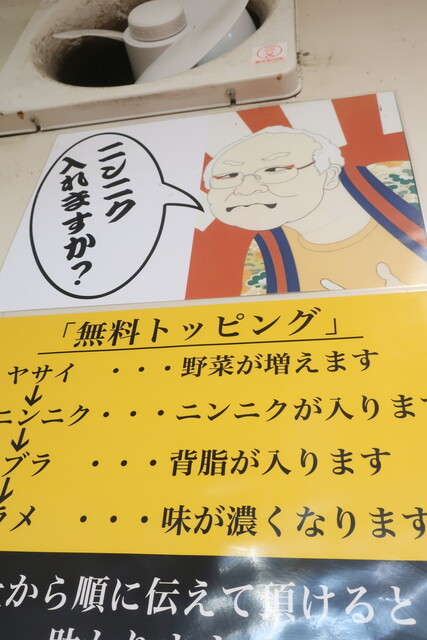 ニンニク
入れますか?
「無料トッピング」
ヤサイ ・・・野菜が増えます
ニンニク・・・ニンニクが入りま
ブラ ・・・背脂が入ります
ラメ ・・・味が濃くなります
から順に伝えて頂けると